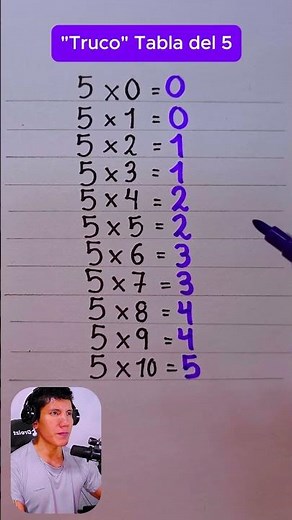 "Truco" Tabla del 5
5 x 0 = 0
5 x 1 = 0
5 x 2 = 1
5 x 3 = 1
5 x 4 = 2
5 x 5 = 2
5 x 6 = 3
5 x 7 = 3
5 x 8 = 4
5 x 9 = 4
5 x 10 = 5